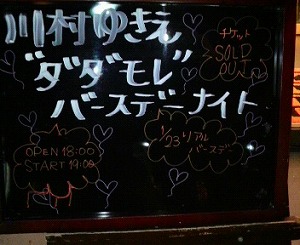 川村ゆきえ
"ダダモレ"
バースデーナイト
チケット
SOLD
OUT
OPEN 18:00
START 19:00
1/23リアル
バースデー